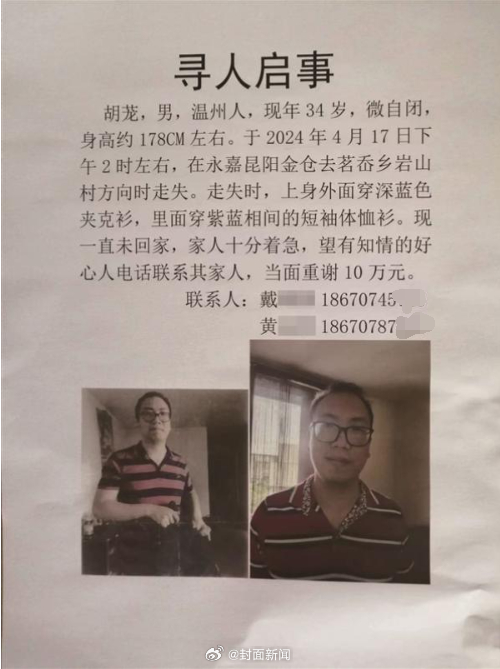 寻人启事
胡茏，男，温州人，现年34岁，微自闭，
身高约178CM左右。于2024年4月17日下
午2时左右，在永嘉昆阳金仓去茗岙乡岩山
村方向时走失。走失时，上身外面穿深蓝色
夹克衫，里面穿紫蓝相间的短袖体恤衫。现
一直未回家，家人十分着急，望有知情的好
心人电话联系其家人，当面重谢10万元。
联系人：戴 18670745
黄 18670787
@封面新闻